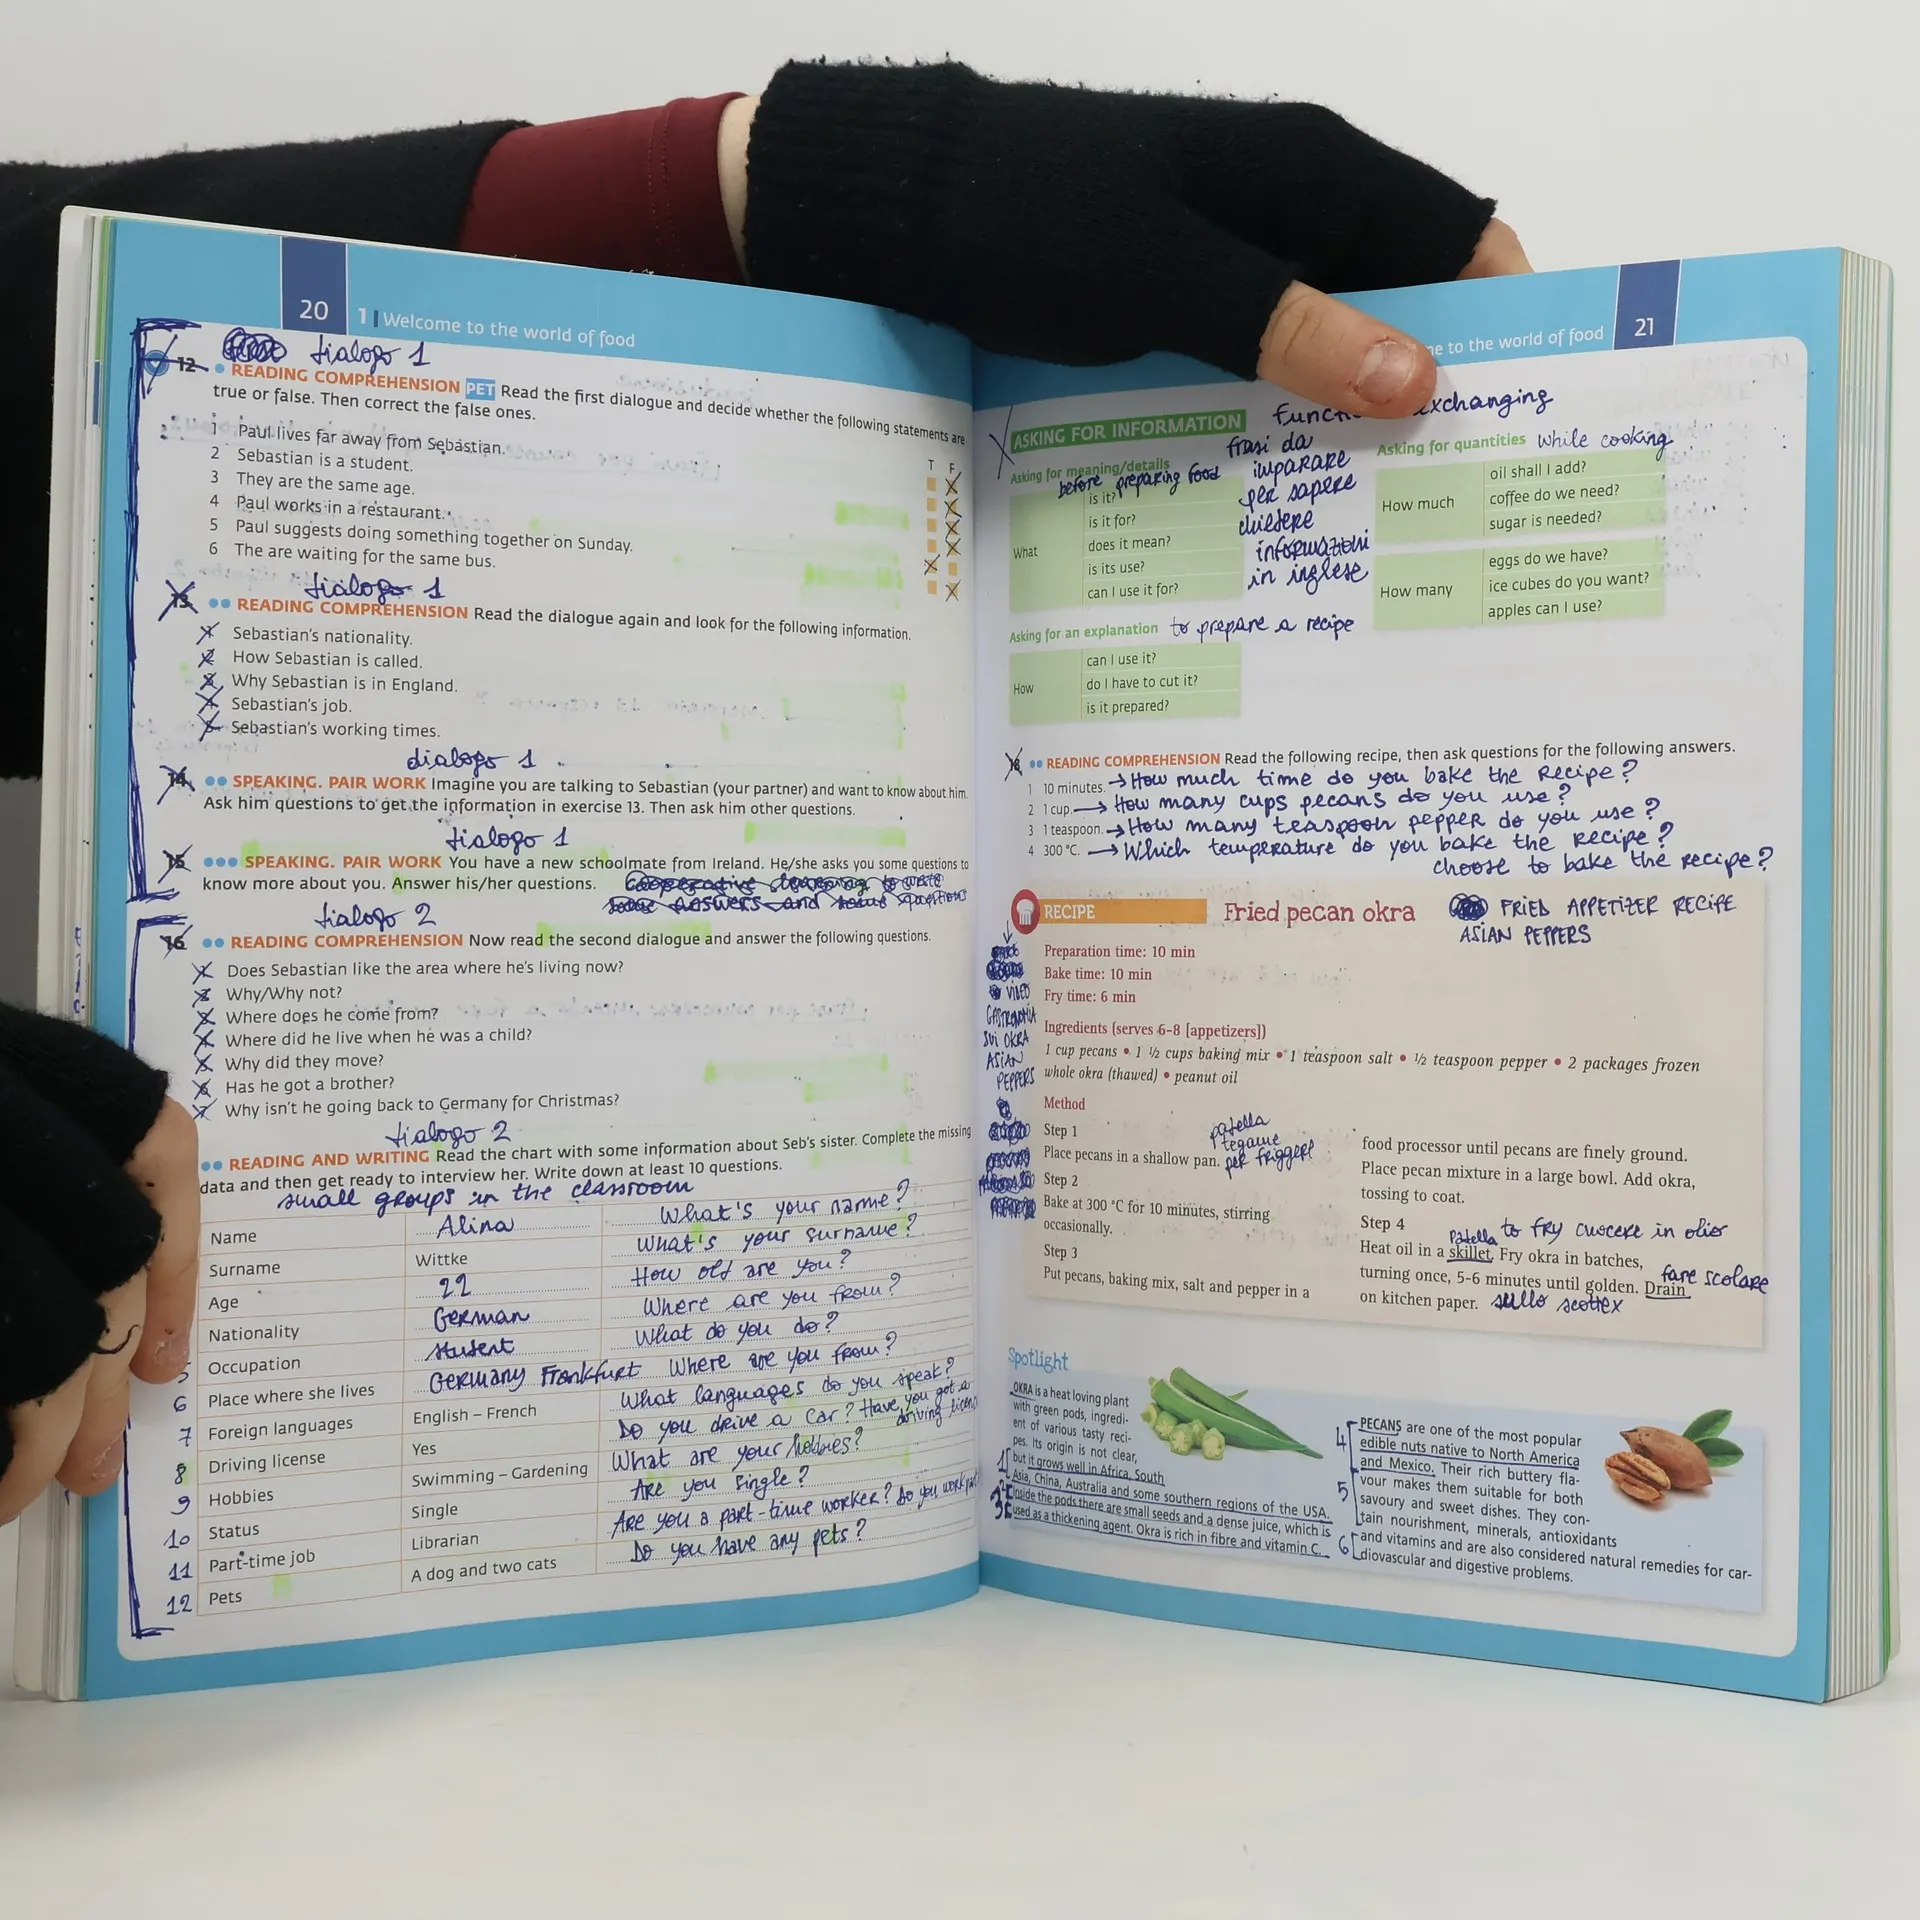 20 1 | Welcome to the world of food
dialogo 1
12 READING COMPREHENSION PET Read the first dialogue and decide whether the following statements are
true or false. Then correct the false ones.
T F
1 Paul lives far away from Sebastian.
2 Sebastian is a student.
3 They are the same age.
4 Paul works in a restaurant.
5 Paul suggests doing something together on Sunday.
6 The are waiting for the same bus.
dialogo 1
13 READING COMPREHENSION Read the dialogue again and look for the following information.
1 Sebastian's nationality.
2 How Sebastian is called.
3 Why Sebastian is in England.
4 Sebastian's job.
5 Sebastian's working times.
dialogo 1
14 SPEAKING. PAIR WORK Imagine you are talking to Sebastian (your partner) and want to know about him.
Ask him questions to get the information in exercise 13. Then ask him other questions.
dialogo 1
15 SPEAKING. PAIR WORK You have a new schoolmate from Ireland. He/she asks you some questions to
know more about you. Answer his/her questions.
dialogo 2
16 READING COMPREHENSION Now read the second dialogue and answer the following questions.
1 Does Sebastian like the area where he's living now?
2 Why/Why not?
3 Where does he come from?
4 Where did he live when he was a child?
5 Why did they move?
6 Has he got a brother?
7 Why isn't he going back to Germany for Christmas?
dialogo 2
READING AND WRITING Read the chart with some information about Seb's sister. Complete the missing
data and then get ready to interview her. Write down at least 10 questions.
small groups in the classroom
Name Alina What's your name?
Surname Wittke What's your surname?
Age 22 How old are you?
Nationality German Where are you from?
5 Occupation student What do you do?
6 Place where she lives Germany Frankfurt Where are you from?
7 Foreign languages English – French What languages do you speak?
8 Driving license Yes Do you drive a car? Have you got a
driving licence
9 Hobbies Swimming – Gardening What are your hobbies?
10 Status Single Are you single?
11 Part-time job Librarian Are you a part-time worker? Do you work
12 Pets A dog and two cats Do you have any pets?
me to the world of food 21
exchanging
ASKING FOR INFORMATION
frasi da
imparare
per sapere
chiedere
informazioni
in inglese
Asking for meaning/details
before preparing food
What
is it?
is it for?
does it mean?
is its use?
can I use it for?
Asking for quantities while cooking
How much
oil shall I add?
coffee do we need?
sugar is needed?
How many
eggs do we have?
ice cubes do you want?
apples can I use?
Asking for an explanation to prepare a recipe
How
can I use it?
do I have to cut it?
is it prepared?
18 READING COMPREHENSION Read the following recipe, then ask questions for the following answers.
1 10 minutes. → How much time do you bake the recipe?
2 1 cup. → How many cups pecans do you use?
3 1 teaspoon. → How many teaspoon pepper do you use?
4 300 °C. → Which temperature do you bake the recipe?
choose to bake the recipe?
RECIPE Fried pecan okra
FRIED APPETIZER RECIPE
ASIAN PEPPERS
VIDEO
GASTRONOMIA
SUI OKRA
ASIAN
PEPPERS
Preparation time: 10 min
Bake time: 10 min
Fry time: 6 min
Ingredients (serves 6-8 [appetizers])
1 cup pecans • 1 ½ cups baking mix • 1 teaspoon salt • ½ teaspoon pepper • 2 packages frozen
whole okra (thawed) • peanut oil
Method
Step 1
Place pecans in a shallow pan.
padella
tegame
per friggere
Step 2
Bake at 300 °C for 10 minutes, stirring
occasionally.
Step 3
Put pecans, baking mix, salt and pepper in a
food processor until pecans are finely ground.
Place pecan mixture in a large bowl. Add okra,
tossing to coat.
Step 4
padella to fry cuocere in olio
Heat oil in a skillet. Fry okra in batches,
turning once, 5-6 minutes until golden. Drain
fare scolare
on kitchen paper. sullo scottex
Spotlight
OKRA is a heat loving plant
with green pods, ingredi-
ent of various tasty reci-
pes. Its origin is not clear,
1 but it grows well in Africa, South
Asia, China, Australia and some southern regions of the USA.
2 Inside the pods there are small seeds and a dense juice, which is
3 used as a thickening agent. Okra is rich in fibre and vitamin C.
4 PECANS are one of the most popular
edible nuts native to North America
and Mexico. Their rich buttery fla-
5 vour makes them suitable for both
savoury and sweet dishes. They con-
tain nourishment, minerals, antioxidants
6 and vitamins and are also considered natural remedies for car-
diovascular and digestive problems.